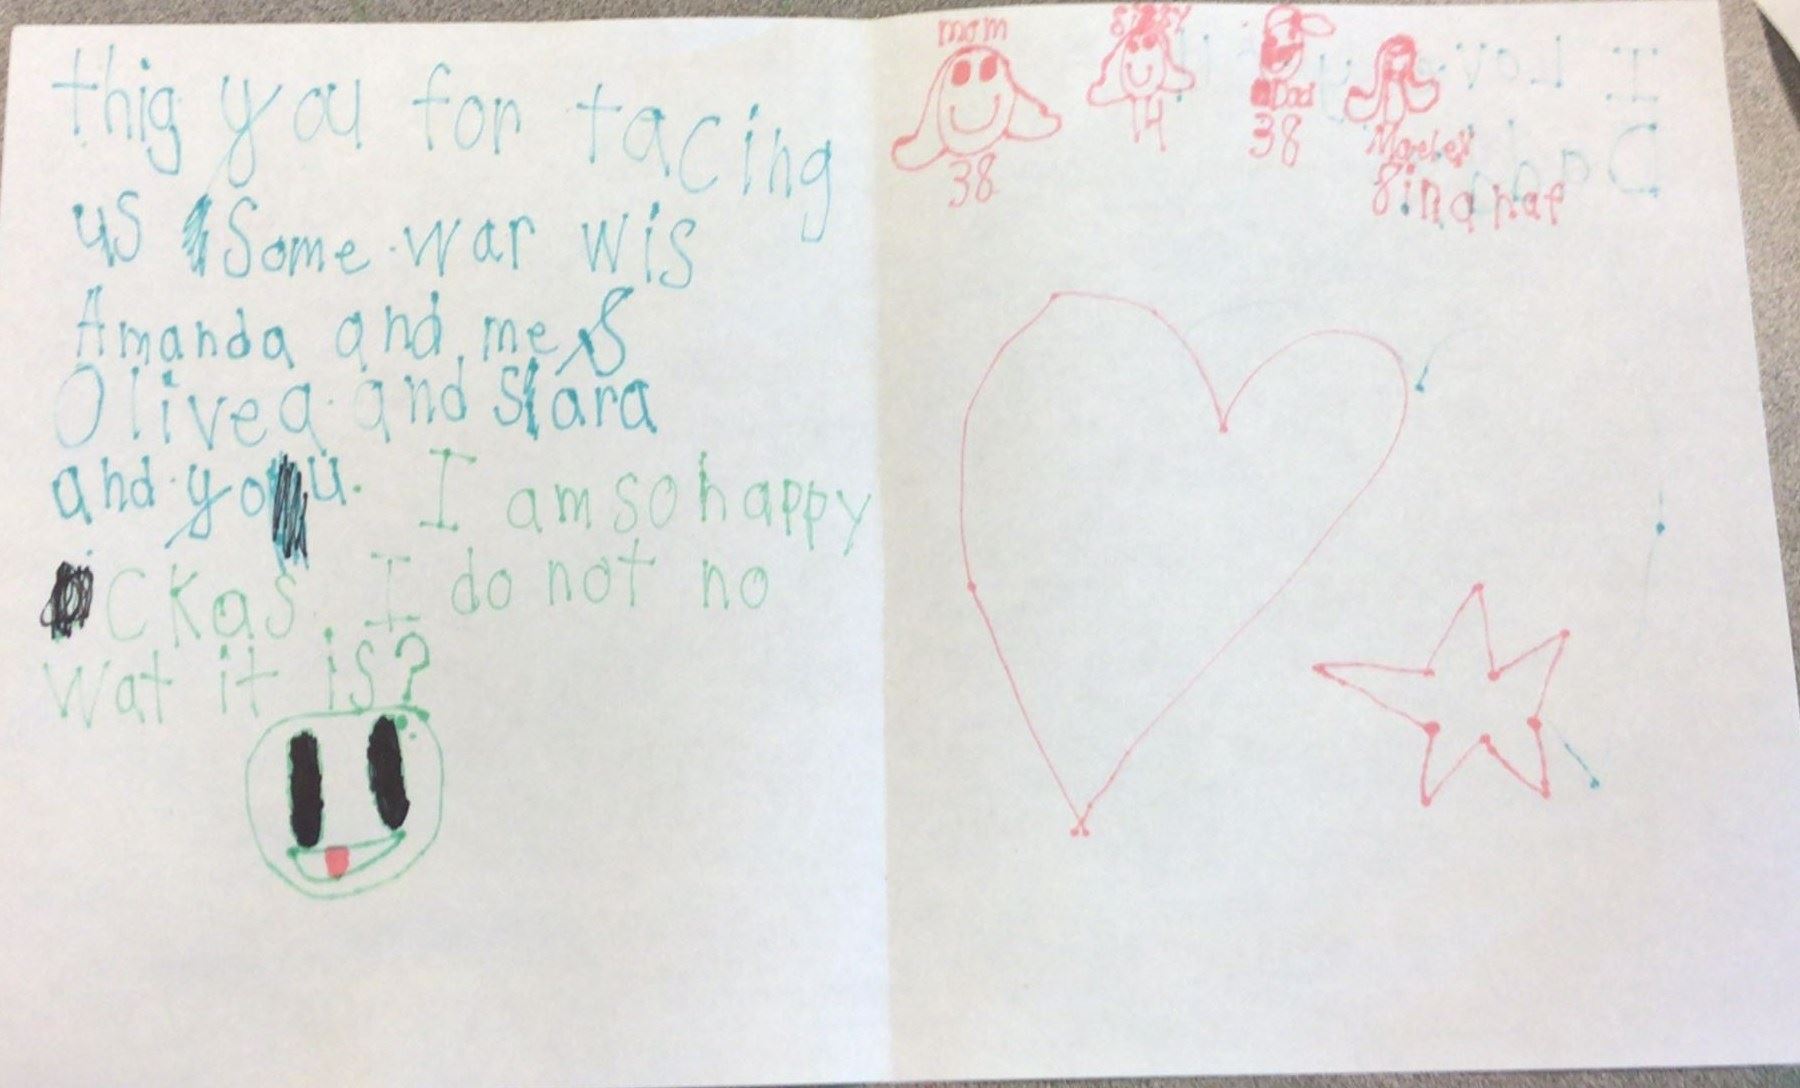 thig you for tacing
us Some war wis
Amanda and me &
Olivea and Sara
and you. I am so happy
ckas. I do not no
wat it is?
mom
38
14
Dad
38
8 in a haf
I Love
Dad